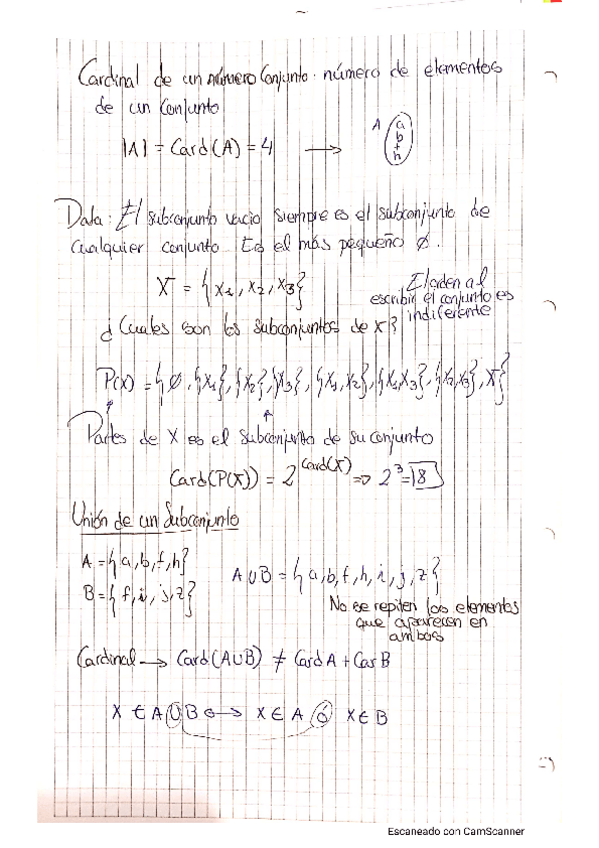 Cardinal de un número Conjunto: número de elementos
de un Conjunto
|A| = Card(A) = 4 →
A a
b
f
h
Data: El subconjunto vacio siempre es el subconjunto de
Cualquier conjunto Es el más pequeño ø.
X = {x1, x2, x3}
El orden al
escribir el conjunto es
indiferente
¿Cuales son los subconjuntos de X?
P(X) = {ø, {x1}, {x2}, {x3}, {x1,x2}, {x1,x3}, {x2,x3}, X}
Partes de X es el subconjunto de su conjunto
Card(P(X)) = 2^Card(X) => 2^3 = 8
Unión de un Subconjunto
A = {a,b,f,h}
B = {f,i,j,z}
A∪B = {a,b,f,h,i,j,z}
No se repiten los elementos
que aparecen en
ambos
Cardinal → Card(A∪B) ≠ Card A + Car B
X ∈ A∪B ↔ X ∈ A ó X ∈ B
Escaneado con CamScanner